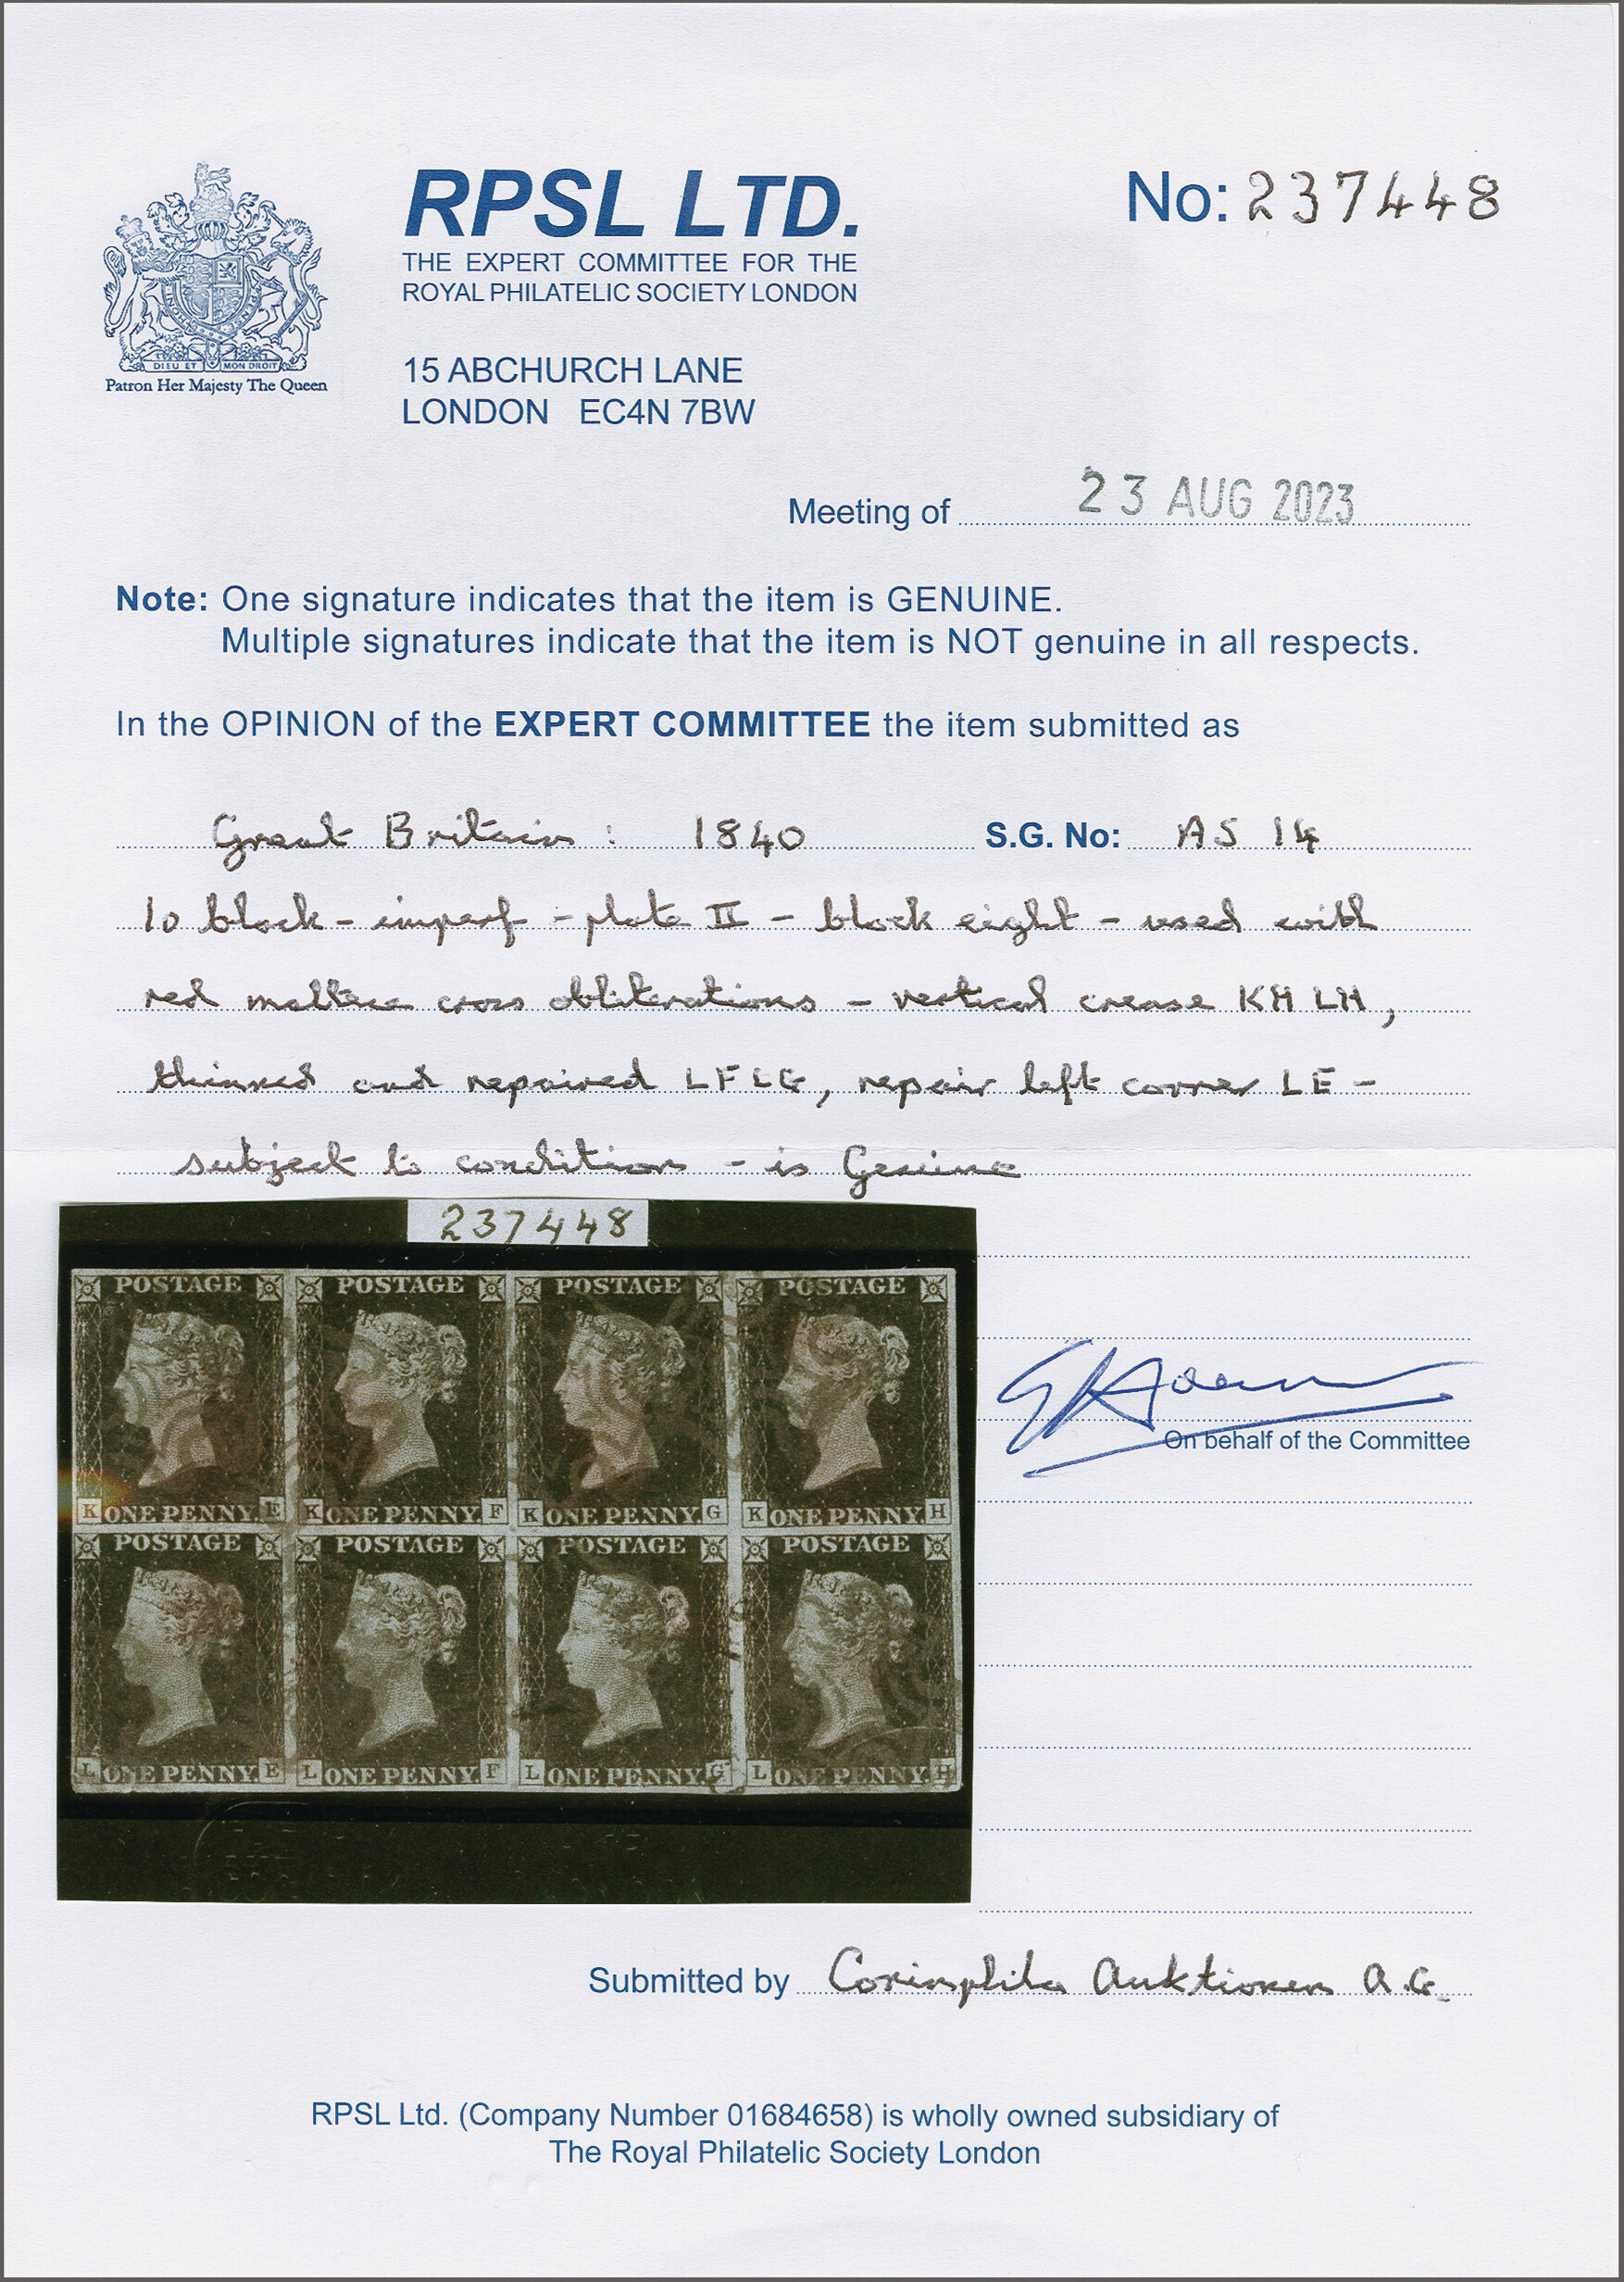 RPSL LTD.
THE EXPERT COMMITTEE FOR THE
ROYAL PHILATELIC SOCIETY LONDON
No: 237448
DIEU ET MON DROIT
Patron Her Majesty The Queen
15 ABCHURCH LANE
LONDON EC4N 7BW
Meeting of 23 AUG 2023
Note: One signature indicates that the item is GENUINE.
Multiple signatures indicate that the item is NOT genuine in all respects.
In the OPINION of the EXPERT COMMITTEE the item submitted as
Great Britain: 1840 S.G. No: AS 14
1D black - imperf - plate II - block eight - used with
red maltese cross obliterations - vertical crease KH LH,
thinned and repaired LF LG, repair left corner LE -
subject to condition - is Genuine
237448
POSTAGE POSTAGE POSTAGE POSTAGE
K ONE PENNY. E K ONE PENNY. F K ONE PENNY. G K ONE PENNY. H
POSTAGE POSTAGE POSTAGE POSTAGE
L ONE PENNY. E L ONE PENNY. F L ONE PENNY. G L ONE PENNY. H
On behalf of the Committee
Submitted by Corinphila Auktionen A.G.
RPSL Ltd. (Company Number 01684658) is wholly owned subsidiary of
The Royal Philatelic Society London